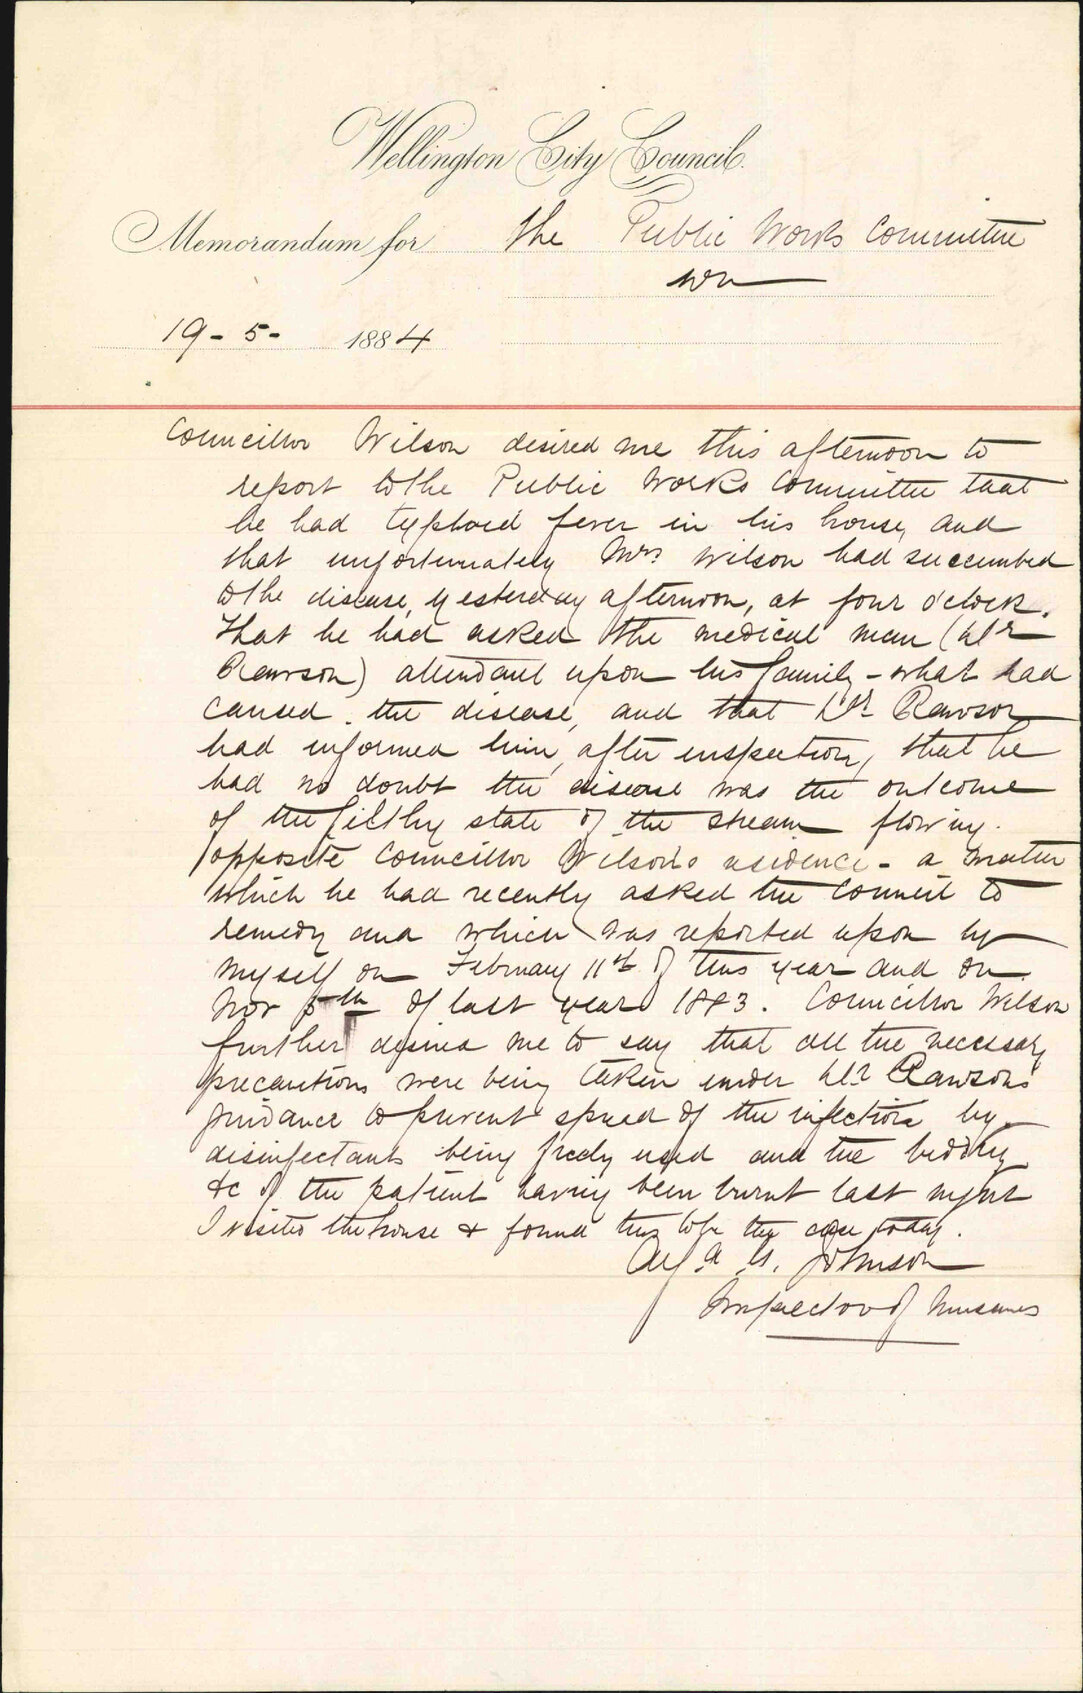 Wellington City Council.
Memorandum for the Public Works Committee
Wn
19-5-1884
Councillor Wilson desired me this afternoon to
report to the Public Works Committee that
he had typhoid fever in his house, and
that unfortunately Mrs Wilson had succumbed
to the disease, yesterday afternoon, at four o'clock.
That he had asked the medical man (Dr
Rawson) attendant upon his family - what had
caused the disease, and that Dr Rawson
had informed him, after inspection, that he
had no doubt the disease was the outcome
of the filthy state of the stream flowing
opposite Councillor Wilson's residence - a matter
which he had recently asked the Council to
remedy and which was reported upon by
myself on February 11th of this year and on
Nov 5th of last year 1883. Councillor Wilson
further desired me to say that all the necessary
precautions were being taken under Dr Rawson's
guidance to prevent spread of the infection by
disinfectants being freely used and the bedding
&c of the patient having been burnt last night
I visited the house & found this to be the case today.
Johnson
Inspector of Nuisances